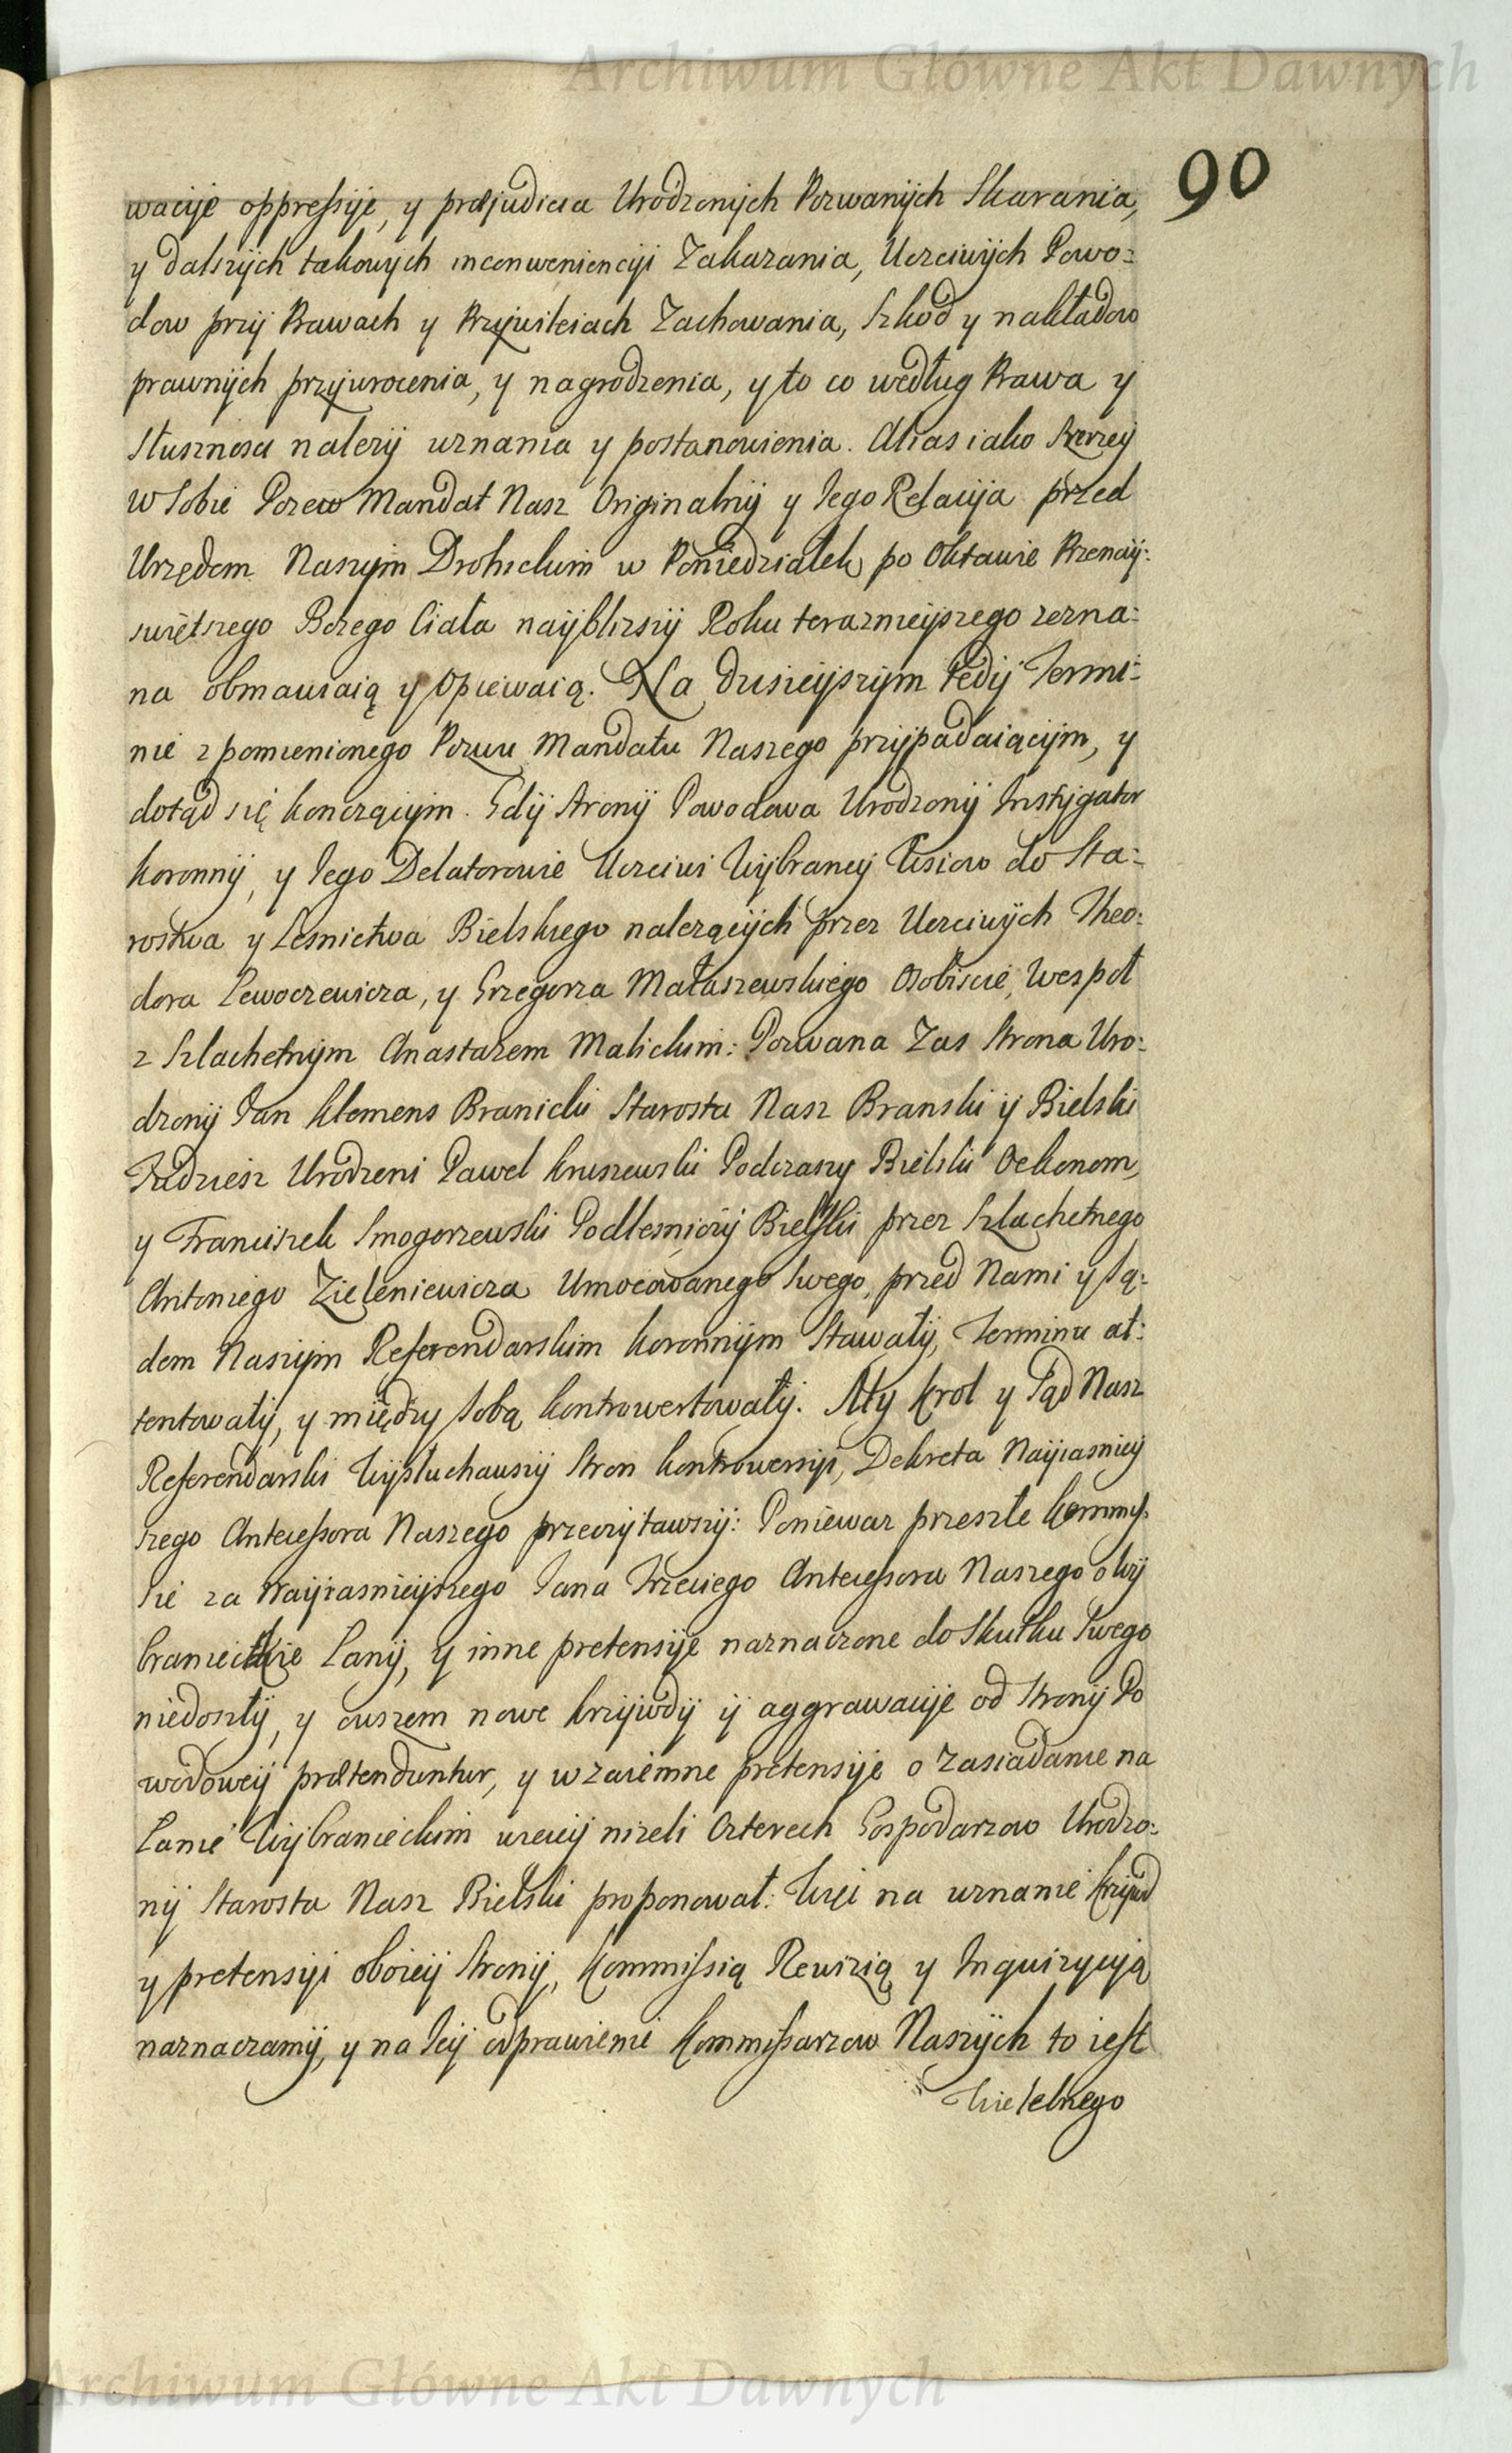 Archiwum Główne Akt Dawnych
90
wacije oppressije, y præjudicia Urodzonijch Pozwanijch Skarania,
y dalszijch takowych inconweniencyi Zakazania, Uczciwijch Powo=
dow przij Prawach y Przywileiach Zachowania, Szkod y nakładow
prawnijch przywrocenia, y nagrodzenia, y to co według Prawa y
Słusznosci należij uznania y postanowienia. Alias iako szerzey
w Sobie Pozew Mandat Nasz Originalnij y Jego Relacija przed
Urzędem Naszijm Drohickim w Poniedziałek po Oktawie Przenaij=
swiętszego Bożego Ciała naijbliższij Roku teraznieijszego zezna=
na obmawiaią y opiewaią. Na dzisieijszijm tedij Termi=
nie z pomienionego Pozwu Mandatu Naszego przijpadaiącijm, y
dotąd się konczącijm. Gdij Stronij Powodowa Urodzonij Instijgator
Koronnij, y Jego Delatorowie Uczciwi Wijbrancij Wsiow do Sta=
rostwa y Lesnictwa Bielskiego należącijch przez Uczciwijch Theo=
dora Lewoczewicza, y Grzegorza Mataszewskiego Osobiscie, Wespoł
z Szlachetnijm Anastazem Malickim: Pozwana Zas Strona Uro=
dzonij Jan Klemens Branicki Starosta Nasz Branski ij Bielski
Tudziesz Urodzeni Paweł Kruszewski Podczaszy Bielski Oekonom,
y Franciszek Smogorzewski Podlesniczij Bielski przez Szlachetnego
Antoniego Zieleniewicza Umocowanego Swego, przed Nami y Są=
dem Naszijm Referendarskim Koronnijm Stawałij, Terminu at=
tentowałij, y między Sobą kontrowertowałij. My Krol y Sąd Nasz
Referendarski Wijsłuchawszij Stron kontrowersyi, Dekreta Naijiasniey
szego Antecessora Naszego przeczijtawszij: Poniewaz przeszłe Kommis
sie za Naijiasnieijszego Jana Trzeciego Antecessora Naszego o Wij
branieckie Lanij, y inne pretensije naznaczone do Skutku Swego
niedoszłij, y owszem nowe krzijwdij ij aggrawacije od Stronij Po
wodoweij prætenduntur, y wzaiemne pretensije o zasiadanie na
Lanie Wijbranieckim wiecij nizeli Czterech Gospodarzow Urodzo=
nij Starosta Nasz Bielski proponował: Więc na uznanie krzijwd
y pretensyi oboieij Stronij, Kommissią Rewizią y Inquizycyją
naznaczamij, y na Jeij odprawienie Kommissarzow Naszijch to iest
Wielebnego
Archiwum Główne Akt Dawnych